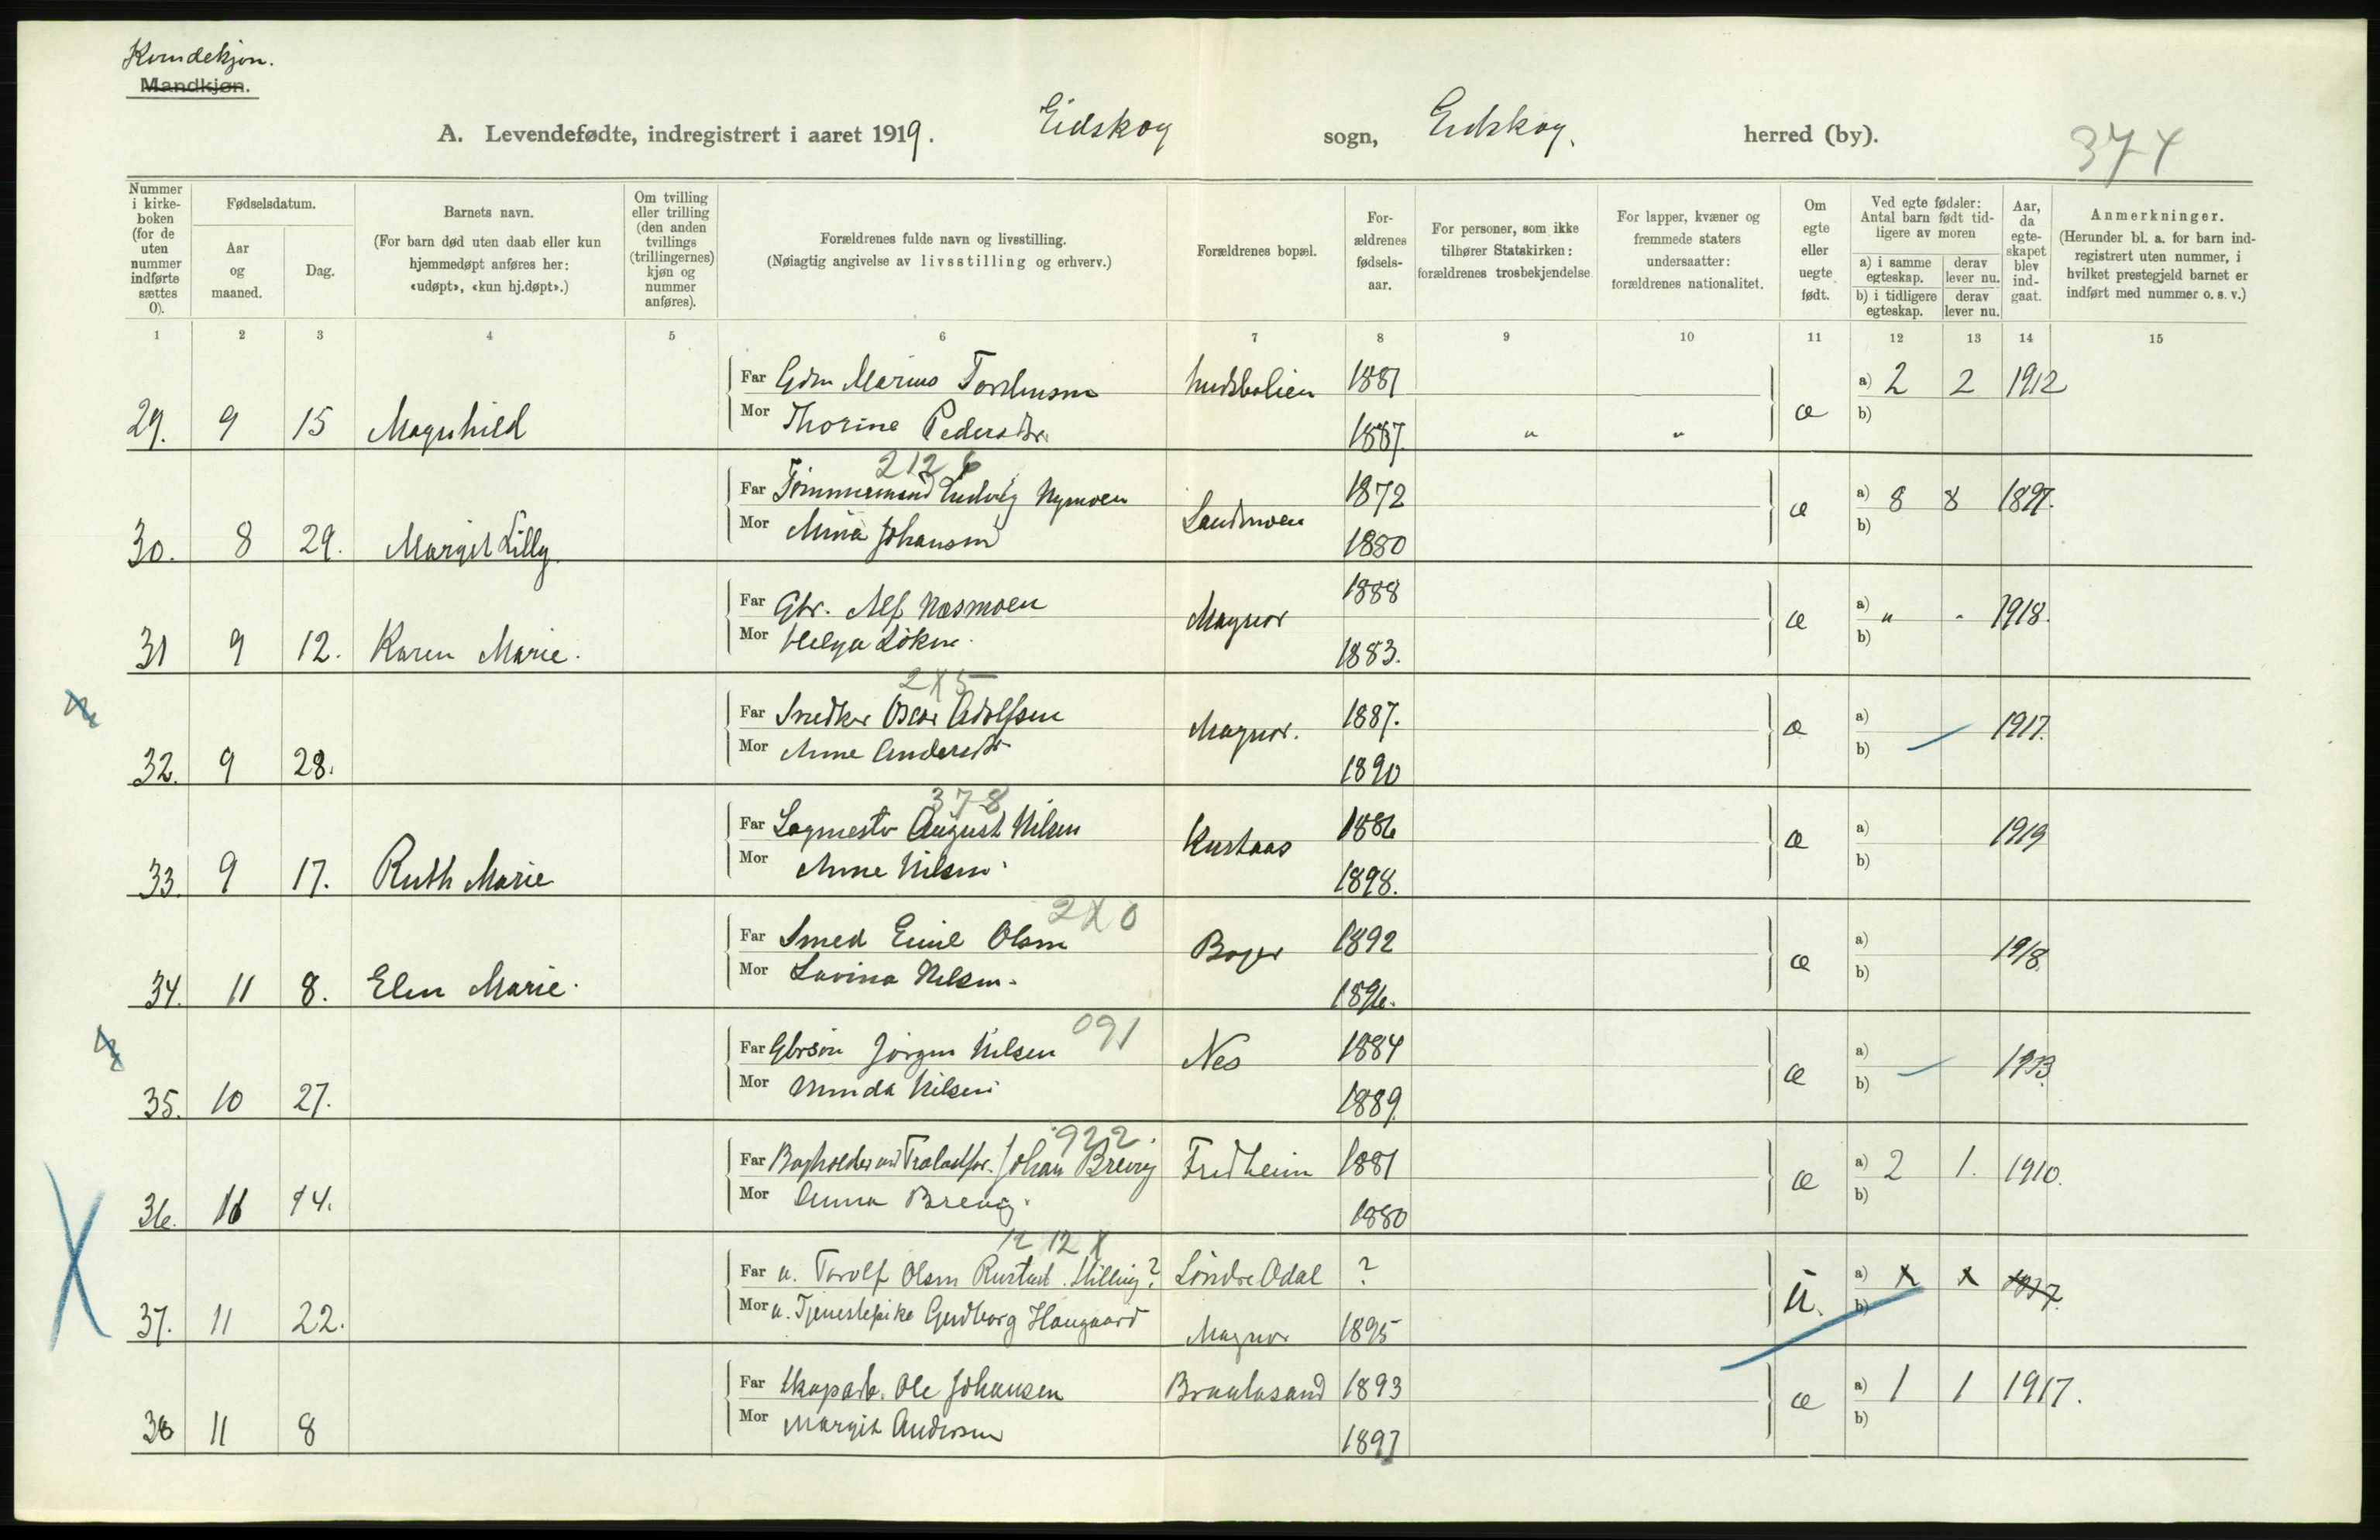 Kvindekjøn.
Mandkjøn.
A. Levendefødte, indregistrert i aaret 1919. Eidskog sogn, Eidskog. herred (by). 374
Nummer i kirke-boken (for de uten nummer indførte sættes 0).
Fødselsdatum.
Aar og maaned.
Dag.
Barnets navn.
(For barn død uten daab eller kun hjemmedøpt anføres her: «udøpt», «kun hj.døpt».)
Om tvilling eller trilling (den anden tvillings (trillingernes) kjøn og nummer anføres).
Forældrenes fulde navn og livsstilling.
(Nøiagtig angivelse av livsstilling og erhverv.)
Forældrenes bopæl.
For-ældrenes fødsels-aar.
For personer, som ikke tilhører Statskirken: forældrenes trosbekjendelse.
For lapper, kvæner og fremmede staters undersaatter: forældrenes nationalitet.
Om egte eller uegte født.
Ved egte fødsler: Antal barn født tid-ligere av moren
a) i samme egteskap. derav lever nu.
b) i tidligere egteskap. derav lever nu.
Aar, da egte-skapet blev ind-gaat.
Anmerkninger.
(Herunder bl. a. for barn ind-registrert uten nummer, i hvilket prestegjeld barnet er indført med nummer o. s. v.)
1 2 3 4 5 6 7 8 9 10 11 12 13 14 15
Far Gdm Marius 1881 a) 2 2 1912
29. 9 15 Magnhild Mor Thorine Pedersdtr. 1887. " " æ b)
2126
Far Tømmermand Ludvig Nymoen Sandmoen 1872 æ a) 8 8 1897.
30. 8 29. Margit Lilly. Mor Mina Johansen 1880 b)
Far Gbr. Alf Næsmoen Magnor 1888 æ a) " " 1918.
31 9 12. Karen Marie. Mor Helga Løken. 1883. b)
2X5
Far Snedker Oscar Adolfsen Magnor. 1887. æ a) 1917.
32. 9 28. Mor Anne Andersdtr 1890 b)
378
Far August Nilsen 1886 æ a) 1919
33. 9 17. Ruth Marie Mor Anne Nilsen. 1898. b)
2X0
Far Smed Emil Olsen Boger 1892 æ a) 1918.
34. 11 8. Elen Marie. Mor Lovina Nilsen. 1896. b)
091
Far Gbrsøn Jørgen Nilsen Nes 1884 æ a) 1913
35. 10 27. Mor Nilsen 1889. b)
922.
Far Bogholder ved Johan Brevig Fredheim 1881 æ a) 2 1. 1910.
36. 11 14. Mor Anna Brevig. 1880 b)
12 12 X
Far u. Torolf Olsen Rustad. Stilling? Søndre Odal ? u. a) x x 1917.
37. 11 22. Mor u. Tjenestepike Gudborg Haugaard Magnor 1895 b)
Far Skogarb. Ole Johansen Braatasand 1893 æ a) 1 1 1917.
38 11 8 Mor Margit Andersen 1897 b)